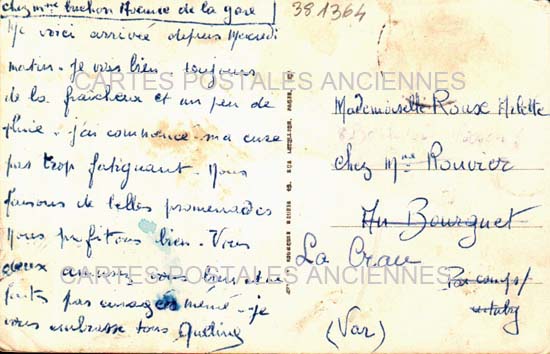 chez Mme Euchon Avenue de la gare
381364
Me voici arrivée depuis Mercredi
matin. je vais bien. toujours
de la fraicheur et un peu de
pluie. j'ai commencé ma cure
pas trop fatiguant. Nous
faisons de belles promenades
Nous profitons bien. Vous
deux amusez vous bien et ne
faites pas enrager mémé. je
vous embrasse tous
CARTES POSTALES ANCIENNES
CARTES POSTALES ANCIENNES
Mademoiselle Roux
chez Mme Rouvier
Au Bourguet
La Crau
Par comps/
(Var)